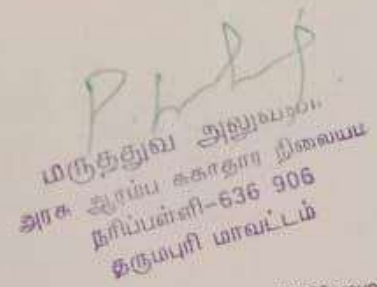 மருத்துவ அலுவலர்
அரசு ஆரம்ப சுகாதார நிலையம்
நரிப்பள்ளி-636 906
தருமபுரி மாவட்டம்